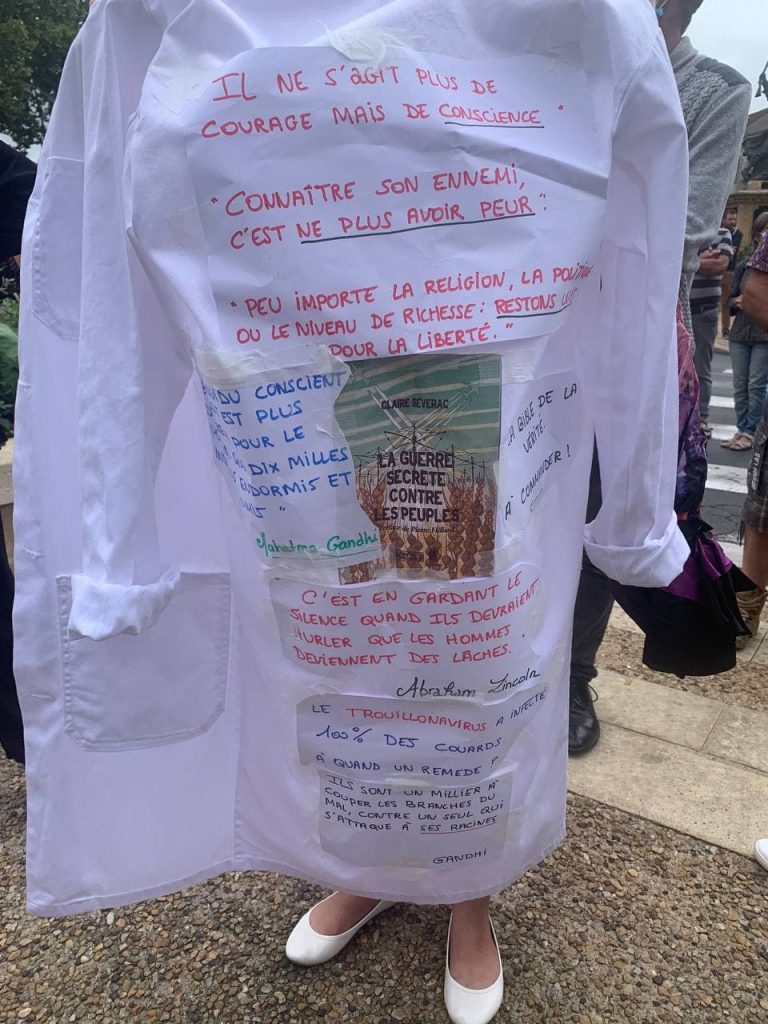 " IL NE S'AGIT PLUS DE
COURAGE MAIS DE CONSCIENCE "
" CONNAÎTRE SON ENNEMI,
C'EST NE PLUS AVOIR PEUR ".
" PEU IMPORTE LA RELIGION, LA
OU LE NIVEAU DE RICHESSE : RESTONS
POUR LA LIBERTÉ. "
CONSCIENT
EST PLUS
POUR LE
DIX MILLES
ENDORMIS ET
"
Mahatma Gandhi
CLAIRE SÉVERAC
LA GUERRE
SECRÈTE
CONTRE
LES PEUPLES
de Pierre Hillard
LA BIBLE DE LA
VÉRITÉ.
À COMMANDER !
" C'EST EN GARDANT LE
SILENCE QUAND ILS DEVRAIENT
HURLER QUE LES HOMMES
DEVIENNENT DES LÂCHES. "
Abraham Lincoln
LE TROUILLONAVIRUS A INFECTÉ
100% DES COUARDS.
À QUAND UN REMEDE ?
ILS SONT UN MILLIER À
COUPER LES BRANCHES DU
MAL, CONTRE UN SEUL QUI
S'ATTAQUE À SES RACINES
GANDHI